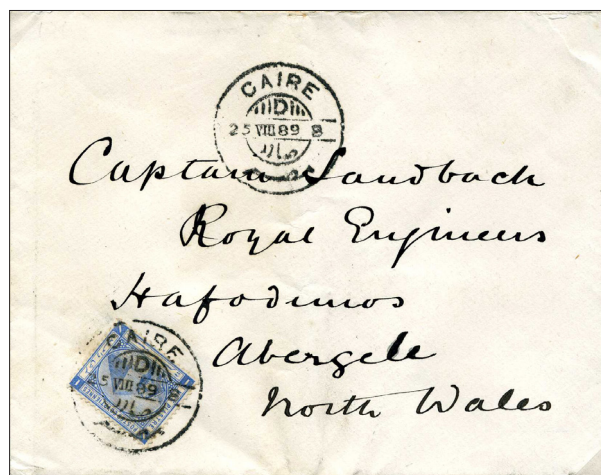 CAIRE
D
25 VIII 89 8
Captain Sandbach
Royal Engineers
Hafodunos
Abergele
North Wales
CAIRE
D
25 VIII 89 8